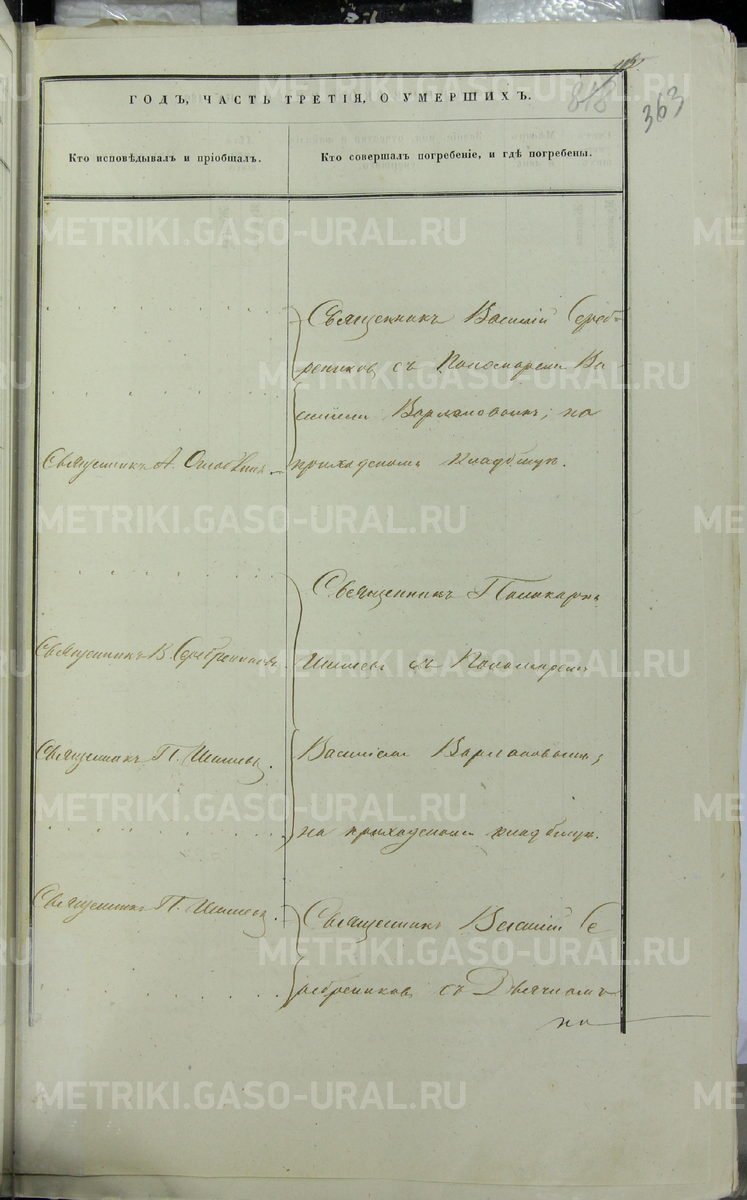 818
363
ГОДЪ, ЧАСТЬ ТРЕТІЯ, О УМЕРШИХЪ.
Кто исповѣдывалъ и пріобщалъ.
Кто совершалъ погребеніе, и гдѣ погребены.
Священникъ Василій Сереб-
рениковъ съ Пономаремъ Ва-
силіемъ Варлаковымъ; на
приходскомъ кладбищѣ.
Священникъ А.
Священникъ Поликарпъ
Шишевъ съ Пономаремъ
Василіемъ Варлаковымъ;
на приходскомъ кладбищѣ.
Священникъ В. Серебрениковъ
Священникъ П. Шишевъ.
Священникъ П. Шишевъ.
Священникъ Василій Се
ребрениковъ съ Дьячкомъ
на
METRIKI.GASO-URAL.RU